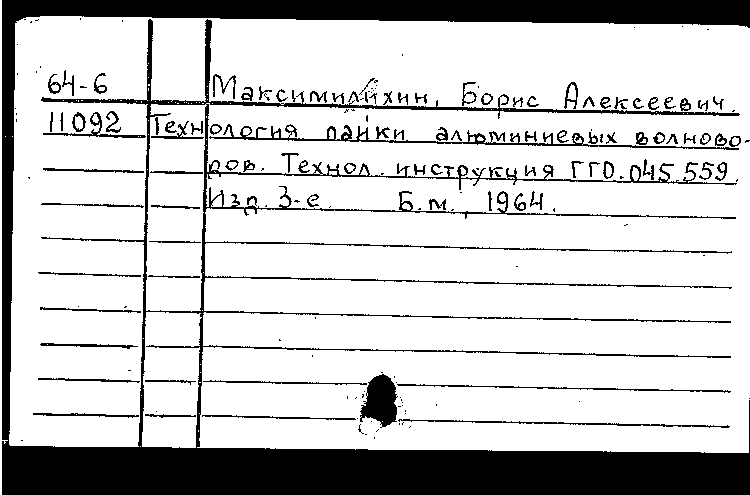 64-6 Максимилихин, Борис Алексеевич.
11092 Технология пайки алюминиевых волново-
дов. Технол. инструкция ГГО.045.559.
Изд. 3-е. Б.м., 1964.